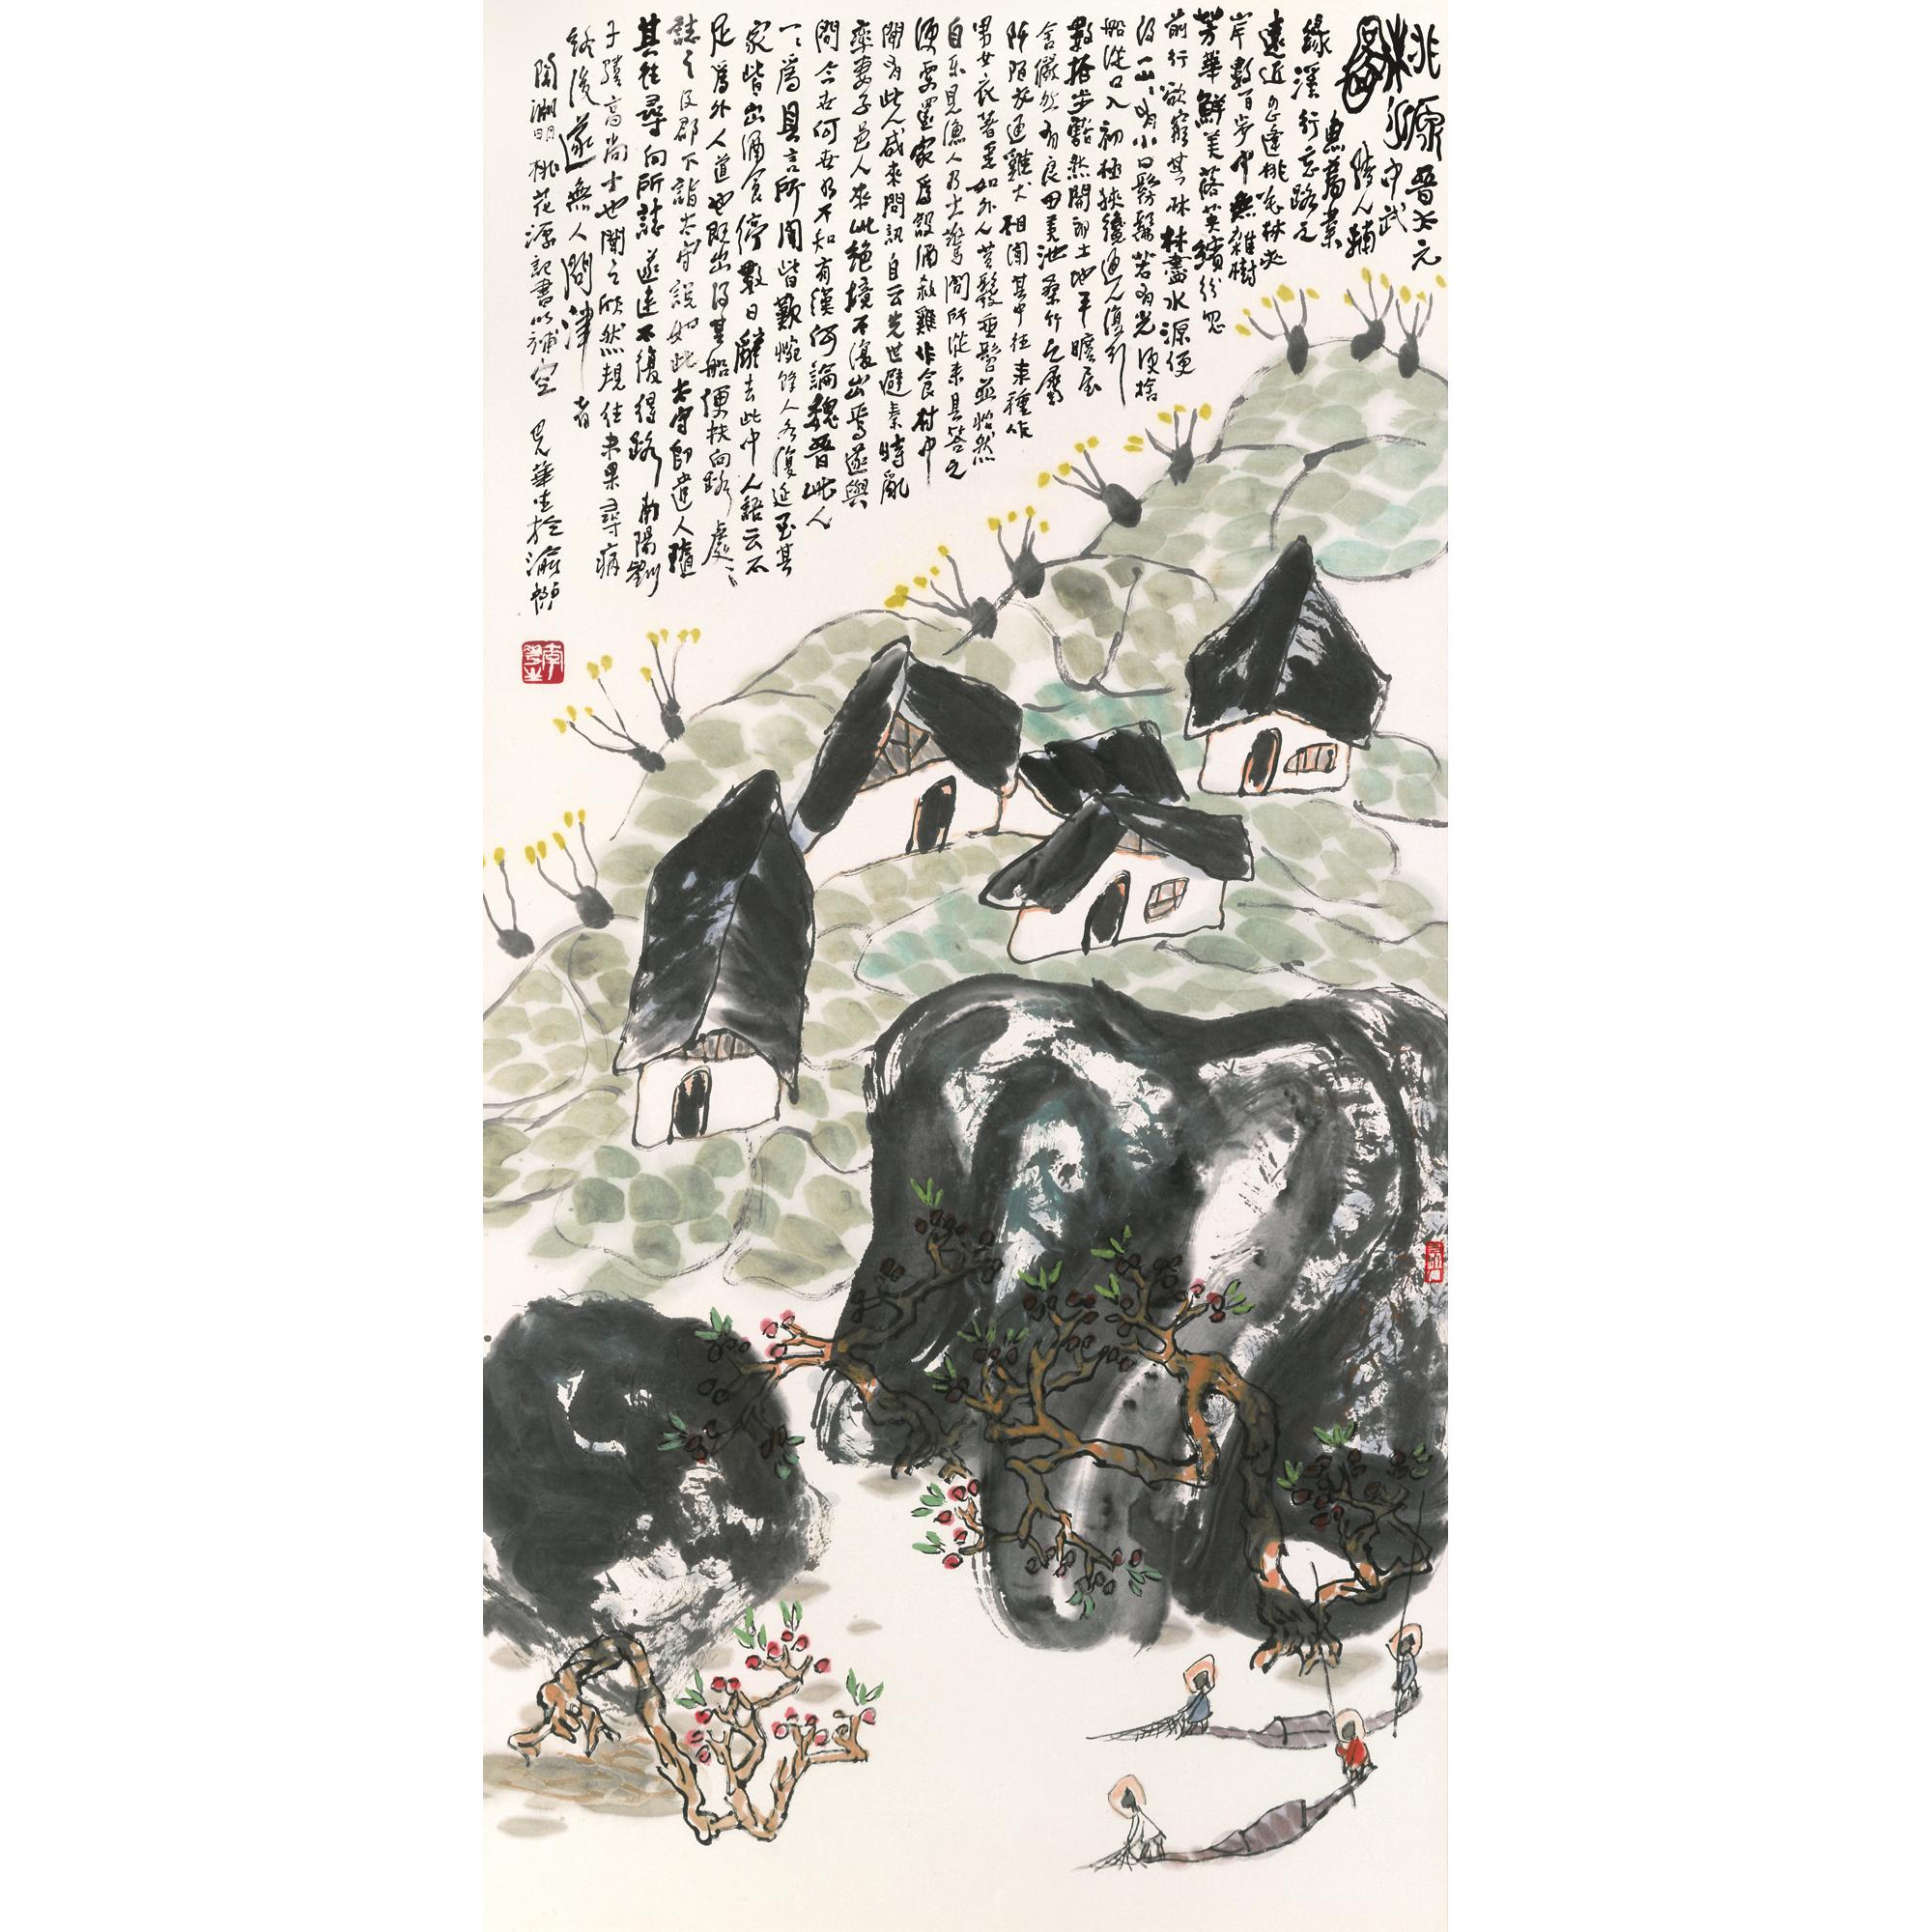 桃源圖
晋太元
中武
陵人輔
魚為業
緣溪行忘路之
遠近忽逢桃花林夾
岸數百步中無雜樹
芳華鮮美落英繽紛忽
前行欲窮其林林盡水源便
得一山山有小口髣髴若有光便捨
船從口入初極狹纔通人復行
數拾步豁然開朗土地平曠屋
舍儼然有良田美池桑竹之屬
阡陌交通雞犬相聞其中往來種作
男女衣著悉如外人黃髮垂髫並怡然
自樂見漁人乃大驚問所從來具答之
便要還家為設酒殺雞作食村中
聞有此人咸來問訊自云先世避秦時亂
率妻子邑人來此絕境不復出焉遂與
問今世何世乃不知有漢何論魏晉此人
一一為具言所聞皆歎惋餘人各復延至其
家皆出酒食停數日辭去此中人語云不
足為外人道也既出得其船便扶向路處處
誌之及郡下詣太守說如此太守即遣人隨
其往尋向所誌遂迷不復得路南陽劉
子驥高尚士也聞之欣然規往未果尋病
終後遂無人問津者
陶淵明桃花源記書以補空 華生於渝
李華生